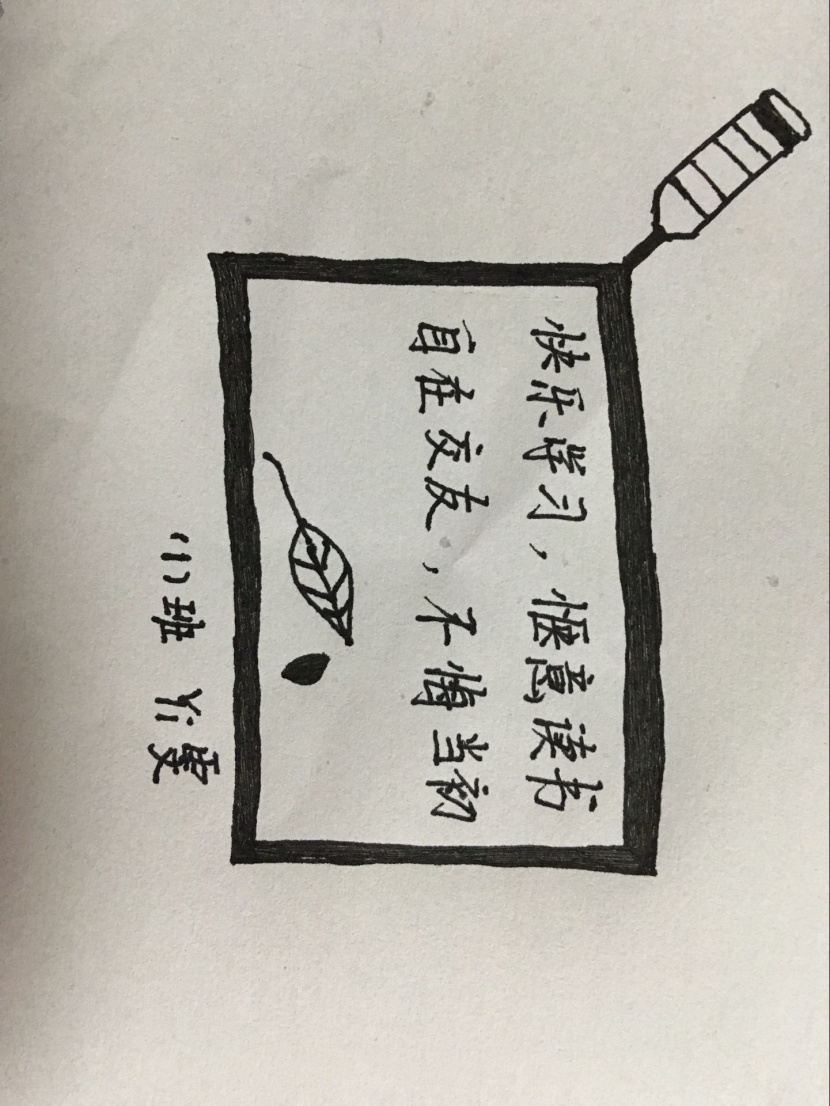 快乐学习，惬意读书
自在交友，不悔当初
(1)班